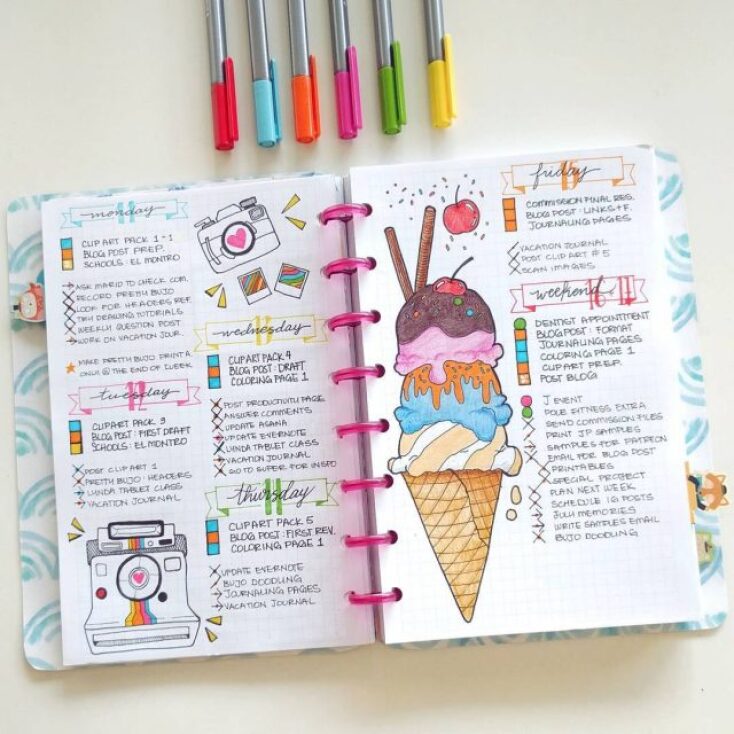 monday
11
CLIP ART PACK 1-1
BLOG POST PREP.
SCHOOLS: EL MONTRO
ASK MARIO TO CHECK COM.
RECORD PRETTY BUJO
LOOK FOR HEADERS REF
DRAWING TUTORIALS
WEEKLY QUESTION POST
WORK ON VACATION JOUR.
MAKE PRETTY BUJO PRINTA
ONLY @ THE END OF WEEK
tuesday
12
CLIPART PACK 3
BLOG POST: FIRST DRAFT
SCHOOLS: EL MONTRO
POST CLIPART 1
PRETTY BUJO: HEADERS
LUNDA TABLET CLASS
VACATION JOURNAL
wednesday
13
CLIPART PACK 4
BLOG POST: DRAFT
COLORING PAGE 1
POST PRODUCTIVITY PAGE
ANSWER COMMENTS
UPDATE ASANA
UPDATE EVERNOTE
LUNDA TABLET CLASS
VACATION JOURNAL
GO TO SUPER FOR INSPO
thursday
CLIPART PACK 5
BLOG POST: FIRST REV.
COLORING PAGE 1
UPDATE EVERNOTE
BUJO DOODLING
JOURNALING PAGES
VACATION JOURNAL
friday
15
COMMISSION FINAL RES.
BLOG POST: LINKS + F.
JOURNALING PAGES
VACATION JOURNAL
POST CLIP ART #5
SCAN IMAGES
weekend
DENTIST APPOINTMENT
BLOG POST: FORMAT
JOURNALING PAGES
COLORING PAGE 1
CLIPART PREP.
POST BLOG
J EVENT
POLE FITNESS EXTRA
SEND COMMISSION FILES
PRINT JP SAMPLES
SAMPLES FOR PATREON
EMAIL FOR BLOG POST
PRINTABLES
SPECIAL PROJECT
PLAN NEXT WEEK
SCHEDULE IG POSTS
JULY MEMORIES
WRITE SAMPLES EMAIL
BUJO DOODLING